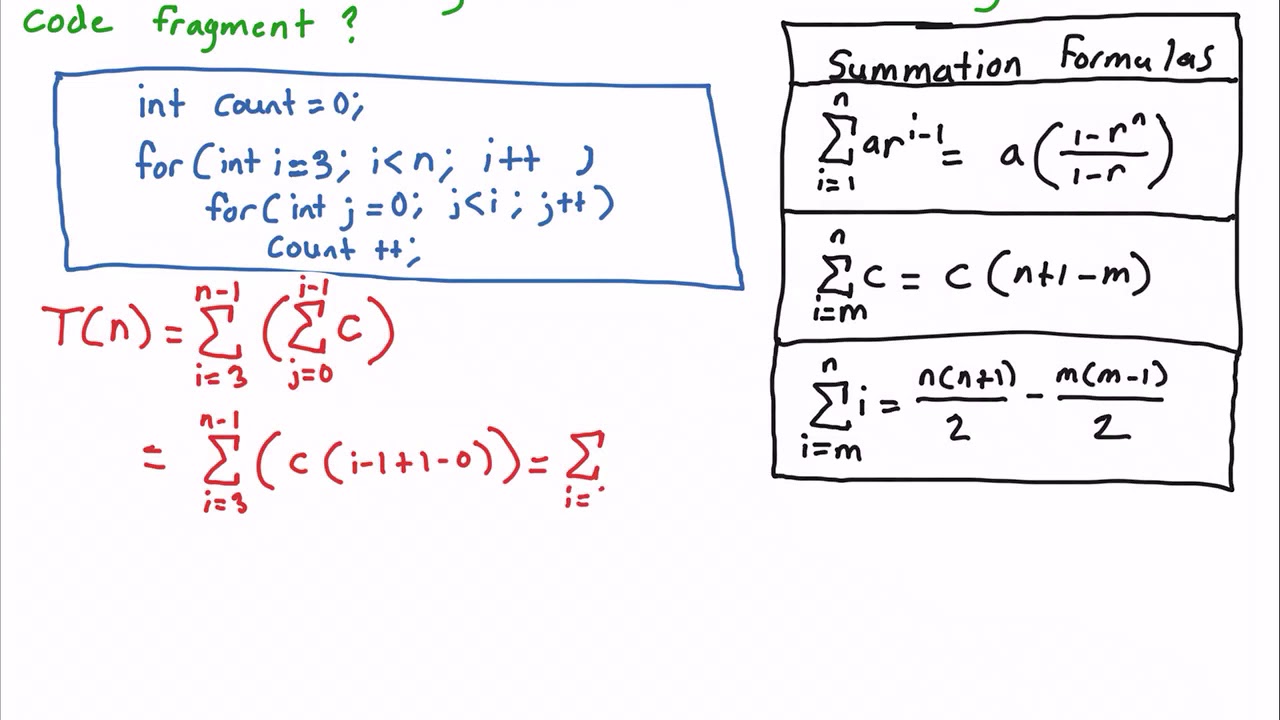 code fragment ?
int count = 0;
for (int i=3; i<n; i++ )
for (int j=0; j<i; j++)
Count ++;
T(n) = \sum_{i=3}^{n-1} ( \sum_{j=0}^{i-1} c )
= \sum_{i=3}^{n-1} ( c (i-1+1-0)) = \sum_{i=}
Summation Formulas
\sum_{i=1}^{n} ar^{i-1} = a ( \frac{1-r^n}{1-r} )
\sum_{i=m}^{n} c = c (n+1-m)
\sum_{i=m}^{n} i = \frac{n(n+1)}{2} - \frac{m(m-1)}{2}